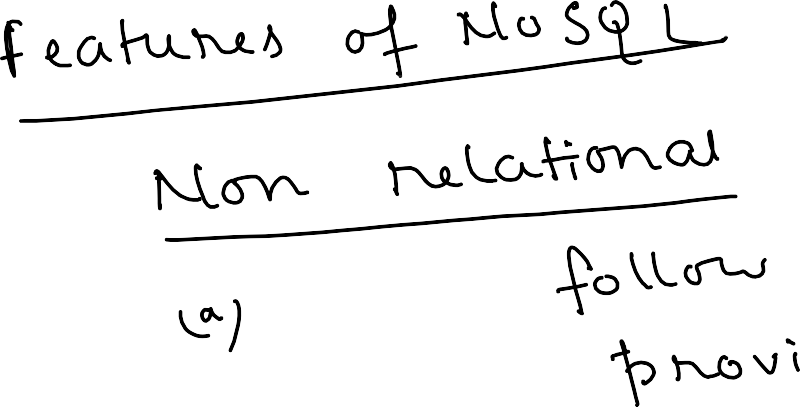 features of NoSQL
Non relational
(a) follow
provi